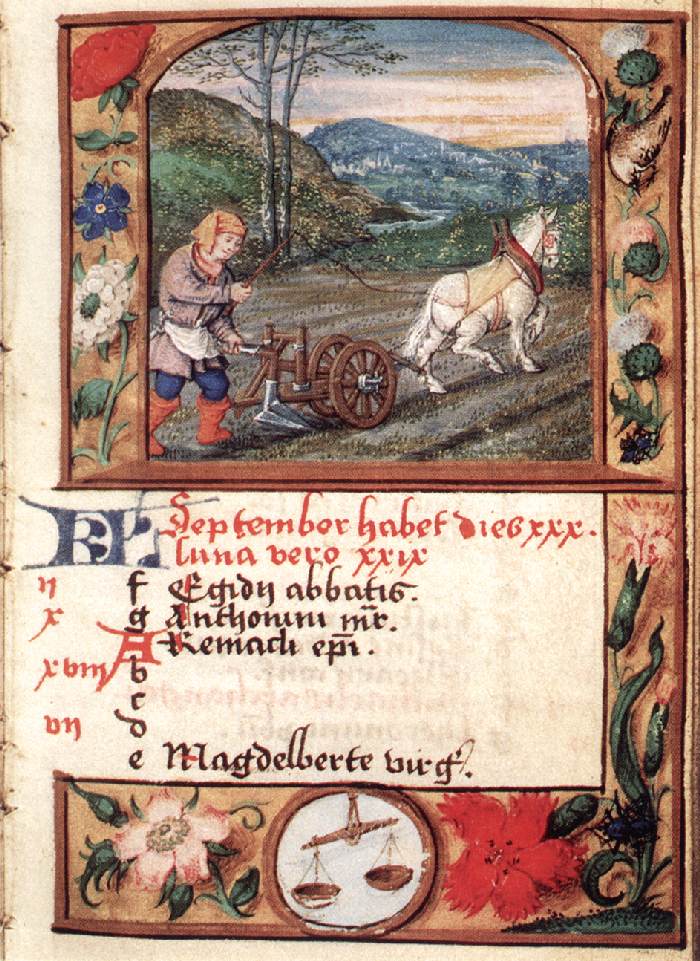 KL September habet dies xxx.
luna vero xxix
ij f Egidij abbatis.
x g Anthonini mr.
A Remacli epi.
xviij b
c
vij d
e Magdelberte virg.